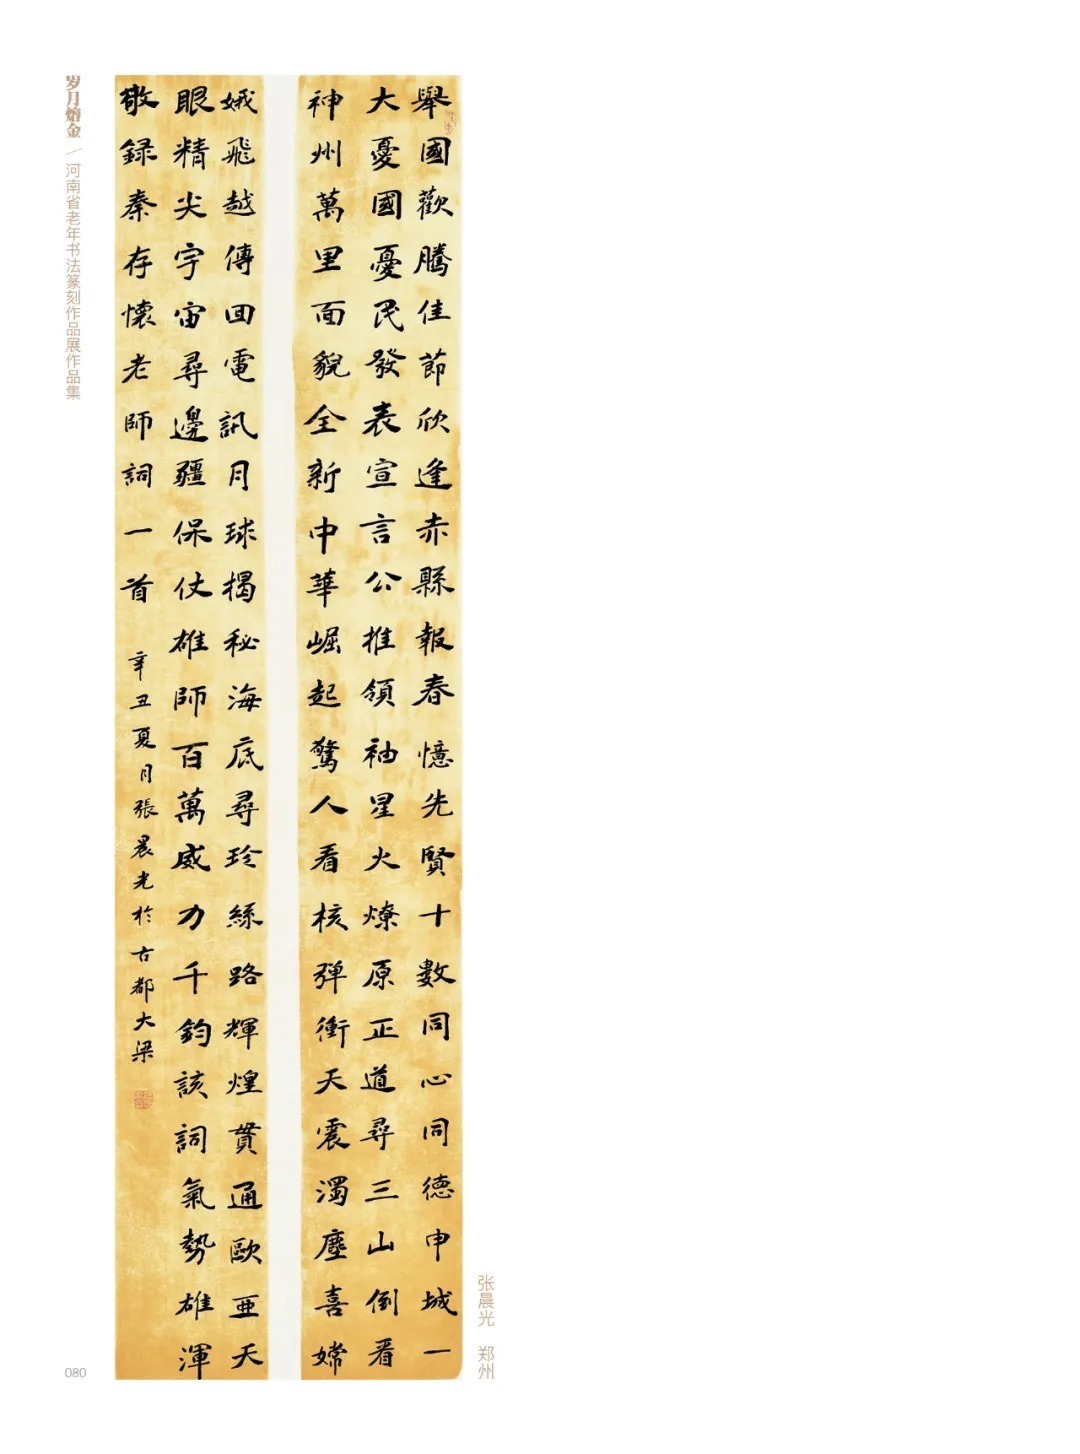 舉國歡騰佳節欣逢赤縣報春憶先賢十數同心同德申城一
大憂國憂民發表宣言公推領袖星火燎原正道尋三山倒看
神州萬里面貌全新中華崛起驚人看核弹衝天震濁塵喜嫦
娥飛越傳回電訊月球揭秘海底尋珍絲路輝煌貫通歐亜天
眼精尖宇宙尋邊疆保仗雄師百萬威力千鈞該詞氣勢雄渾
敬録秦存懷老師詞一首
辛丑夏月張晨光於古都大梁
岁月熔金／河南省老年书法篆刻作品展作品集
张晨光 郑州
080